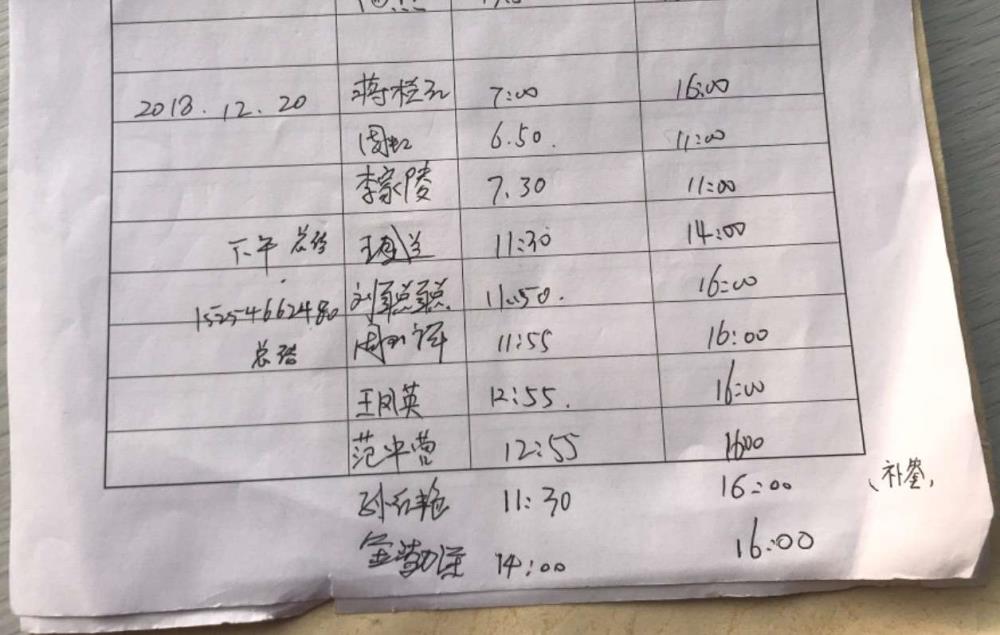 2018.12.20 蒋 7:00 16:00
周虹 6.50. 11:00
李家陵 7.30 11:00
下午 总结 王凤兰 11:30 14:00
刘聪聪 11.50. 16:00
15254662480 周 11:55 16:00
总结
王凤英 12:55. 16:00
范中曹 12:55 1600
孙红艳 11:30 16:00 补签,
金 14:00 16:00